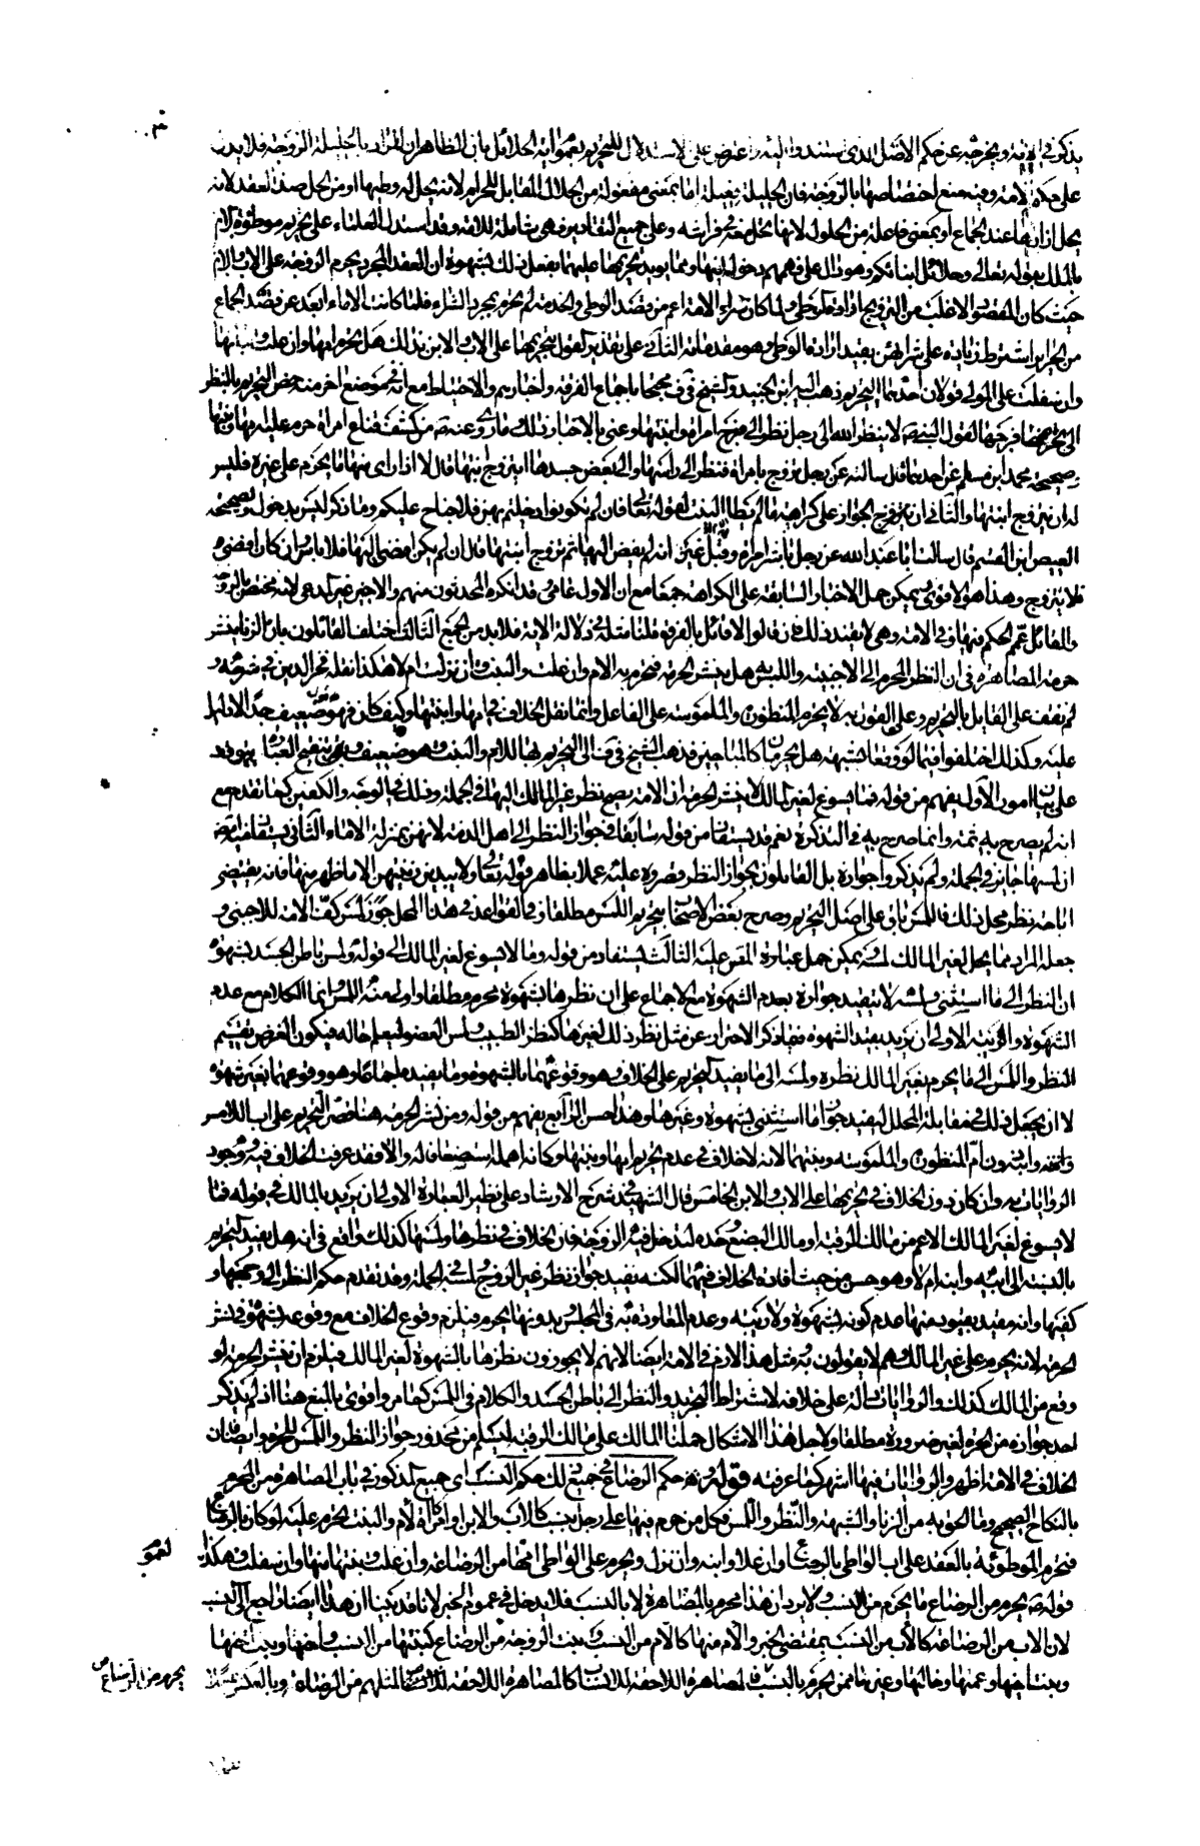 يذكر في الامة ويخرجه عن حكم الاصل الذي يستند اليه واعترض على الاستدلال للتحريم بعموم اية الحلائل بان الظاهر ان المراد بالحليلة الزوجة فلا يدل
على حكم الامة وفيه منع اختصاصها بالزوجة فان الحليلة فعيلة اما بمعنى مفعولة من الحلال المقابل للحرام لانه يحل له وطيها او من الحل ضد العقد لانه
يحل ازارها عند الجماع او بمعنى فاعلة من الحلول لانها تحل معه في فراشه وعلى جميع التقادير فهي شاملة للامة وقد استدل العلماء على تحريم موطوءة
بالملك بقوله تعالى وحلائل ابنائكم وهو دال على فهمهم دخولها فيها ومما يؤيد تحريمها عليهما بفعل ذلك بشهوة ان العقد المجرد يحرم الزوجة على الاب والابن
حيث كان المقصود الاغلب من التزويج اذا وقع الوطي ولما كان شراء الامة اعم من قصد الوطي والخدمة لم يحرم بمجرد الشراء فلما كانت الاماء ابعد عن قصد الجماع
من الحرائر اشترط زيادة على شرائهن بقيد ارادة الوطي وهو مقدماته الثاني على تقدير القول بتحريمها على الاب والابن بذلك هل تحرم امها وان علت وبنتها
وان سفلت على المولى قولان احدهما التحريم ذهب اليه ابن الجنيد والشيخ في ف محتجا باجماع الفرقة واخبارهم والاحتياط مع انه في موضع اخر منه خص التحريم بالنظر
الى فرجها لقول النبي ص لا ينظر الله الى رجل نظر الى فرج امراة وابنتها وعنى بالاخبار ذلك ما روى عنه ص من كشف قناع امراة حرم عليه امها وبنتها
وصحيحة محمد ابن مسلم عن احدهما قال سالته عن رجل تزوج بامراة فنظر الى راسها والى بعض جسدها ايتزوج ابنتها قال لا اذا راى منها ما يحرم على غيره فليس
له ان يتزوج ابنتها والثاني ان يتزوج الجواز على كراهية ما لم يطا البنت لقوله تعالى فان لم تكونوا دخلتم بهن فلا جناح عليكم وما ذكر ليس بدخول وصحيحة
العيص ابن القسم قال سالت ابا عبد الله عن رجل باشر امراة وقبل غير انه لم يفض اليها ثم تزوج ابنتها قال ان لم يكن افضى اليها فلا باس وان كان افضى
فلا يتزوج وهذا هو الاقوى ويمكن حمل الاخبار السابقة على الكراهة جمعا مع ان الاول عامي قد انكره المحدثون منهم والاخير غير الدعوى لانه مختص بالزوجة
والقائل عمم الحكم فيها وفي الامة وهي لا يفيد ذلك فان قالوا لا قائل بالفرق قلنا مثله في دلالة الاية فلا بد من الجمع الثالث اختلف القائلون بان الزنا ينشر
حرمة المصاهرة في ان النظر المحرم الى الاجنبية واللمس هل ينشر الحرمة فتحرم به الام وان علت والبنت وان نزلت ام لا هكذا نقله فخر الدين في شرحه و
لم نقف على القايل بالتحريم وعلى القول به لا تحرم المنظورة والملموسة على الفاعل وانما نقل الخلاف في امها وابنتها وكيف كان فهو ضعيف جدا لا دليل
عليه وكذلك اختلفوا فيما لو وقعا بشبهة هل يحرمان كالمباحين فذهب الشيخ في ف الى التحريم بهما للام والبنت وهو ضعيف وبقي تنقيح العبارة يتوقف
على بيان امور الاول يفهم من قوله فما يسوغ لغير المالك لا ينشر الحرمة ان الامة يصح نظر غير المالك اليها في الجملة وذلك في الوجه والكفين كما تقدم مع
انه لم يصرح به ثمة وانما صرح به في التذكرة نعم قد يستفاد من قوله سابقا في جواز النظر الى اهل الذمة لانهن بمنزلة الاماء الثاني يستفاد ايضا
ان لمسها جايز في الجملة ولم يذكروا جوازه بل القايلون بجواز النظر قصروه عليه عملا بظاهر قوله تعالى ولا يبدين زينتهن الا ما ظهر منها فانه يقتضي
اباحة نظر محل ذلك فاللمس باق على اصل التحريم وصرح بعض الاصحاب بتحريم اللمس مطلقا وفي القواعد في هذا المحل جوز لمس كف الامة للاجنبي و
جعله المراد مما يحل لغير المالك لمسه ويمكن حمل عبارة المص عليه الثالث يستفاد من قوله وما لا يسوغ لغير المالك الى قوله ولمس باطن الجسد بشهوة
ان النظر الى ما استثني ولمسه لا يتقيد جوازه بعدم الشهوة مع الاجماع على ان نظرها بشهوة محرم مطلقا واولى منه اللمس وانما الكلام مع عدم
الشهوة والريبة الاولى ان يريد بقيد الشهوة فيما ذكر الاحتراز عن مثل نظر ذلك لغيرها كنظر الطبيب ولمس العضو ليعلم حاله فيكون الغرض تقسيم
النظر واللمس الى ما يحرم بغير المالك نظره ولمسه الى ما يفيد التحريم على الخلاف وهو وقوعهما بالشهوة وما لا يفيده اجماعا وهو وقوعهما بغير شهوة
لا ان يجعل ذلك في مقابلة المحلل ليفيد جواز ما استثني بشهوة وغيرها وهذا احسن الرابع يفهم من قوله ومن نشر الحرمة هنا قصر التحريم على اب اللامس
والناظر وابنه دون ام المنظورة والملموسة وبنتهما لانه لا خلاف في عدم تحريم امها وبنتها وكانه اهمله استضعافا له والا فقد عرفت الخلاف فيه ووجود
الروايات به وان كان دون الخلاف في تحريمها على الاب والابن الخامس قال الشهيد في شرح الارشاد على نظير العبارة الاولى ان يريد بالمالك في قوله فما
لا يسوغ لغير المالك الاعم من مالك الرقبة او مالك البضع وحده لتدخل فيه الزوجة فان الخلاف في نظرها ولمسها كذلك واقع في انه هل يفيد التحريم
بالنسبة الى ابيه وابنه ام لا وهو حسن من حيث افادة الخلاف فيهما لكنه يفيد جواز نظر غير الزوج ولمسه في الجملة وقد تقدم حكم النظر الى وجهها و
كفيها وانه مقيد بقيود منها عدم كونه بشهوة ولا ريبة وعدم المعاودة به في المجلس وبدونها يحرم فيلزم وقوع الخلاف مع وقوعه بشهوة في نشر
الحرمة لانه يحرم على غير المالك وهم لا يقولون به ومثل هذا لازم في الامة ايضا لانهم لا يجوزون نظرها بالشهوة لغير المالك فيلزم ان تنشر الحرمة لو
وقع من المالك كذلك والروايات دالة على خلافه لاشتراطه التجريد والنظر الى باطن الجسد والكلام في اللمس كما مر واقوى بالمنع هنا اذ لم يذكر
احد جوازه من الحرة لغير ضرورة مطلقا ولاجل هذا الاشكال حملنا المالك على مالك الرقبة ليسلم من محذور جواز النظر واللمس للحرة وايضا فان
الخلاف في الامة اظهر والروايات فيها اشهر كما عرفته قوله وحكم الرضاع في جميع ذلك حكم النسب اي جميع المذكور في باب المصاهرة من المحرم
بالنكاح الصحيح وما الحق به من الزنا والشبهة والنظر واللمس فكل من حرم فيها على رجل بنسب كالاب والابن او امراة كالام والبنت تحرم عليه لو كان بالرضاع
فتحرم الموطوءة بالعقد على اب الواطي بالرضاع وان علا وابنه وان نزل وتحرم على الواطي امها من الرضاعة وان علت وبنتها منها وان سفلت وهكذا
لعموم
قوله ص يحرم من الرضاع ما يحرم من النسب ولا يرد ان هذا محرم بالمصاهرة لا بالنسب فلا يدخل في عموم الخبر لانا قد بينا ان هذا ايضا راجع الى النسب
لان الاب من الرضاعة كالاب من النسب بمقتضى الخبر والام منها كالام من النسب وبنت الزوجة من الرضاع كبنتها من النسب واختها وبنت اختها
وبنت اخيها وعمتها وخالتها وغيرها ممن يحرم بالنسب فالمصاهرة اللاحقة للانساب كالمصاهرة اللاحقة لامثالهم من الرضاعة وبالعكس
يحرم من الرضاع